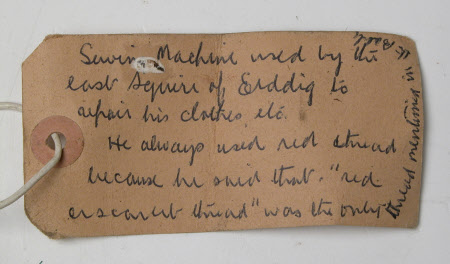 Sewing Machine used by the
last Squire of Erddig to
repair his clothes, etc.
He always used red thread
because he said that "red
or scarlet thread" was the only
thread mentioned in